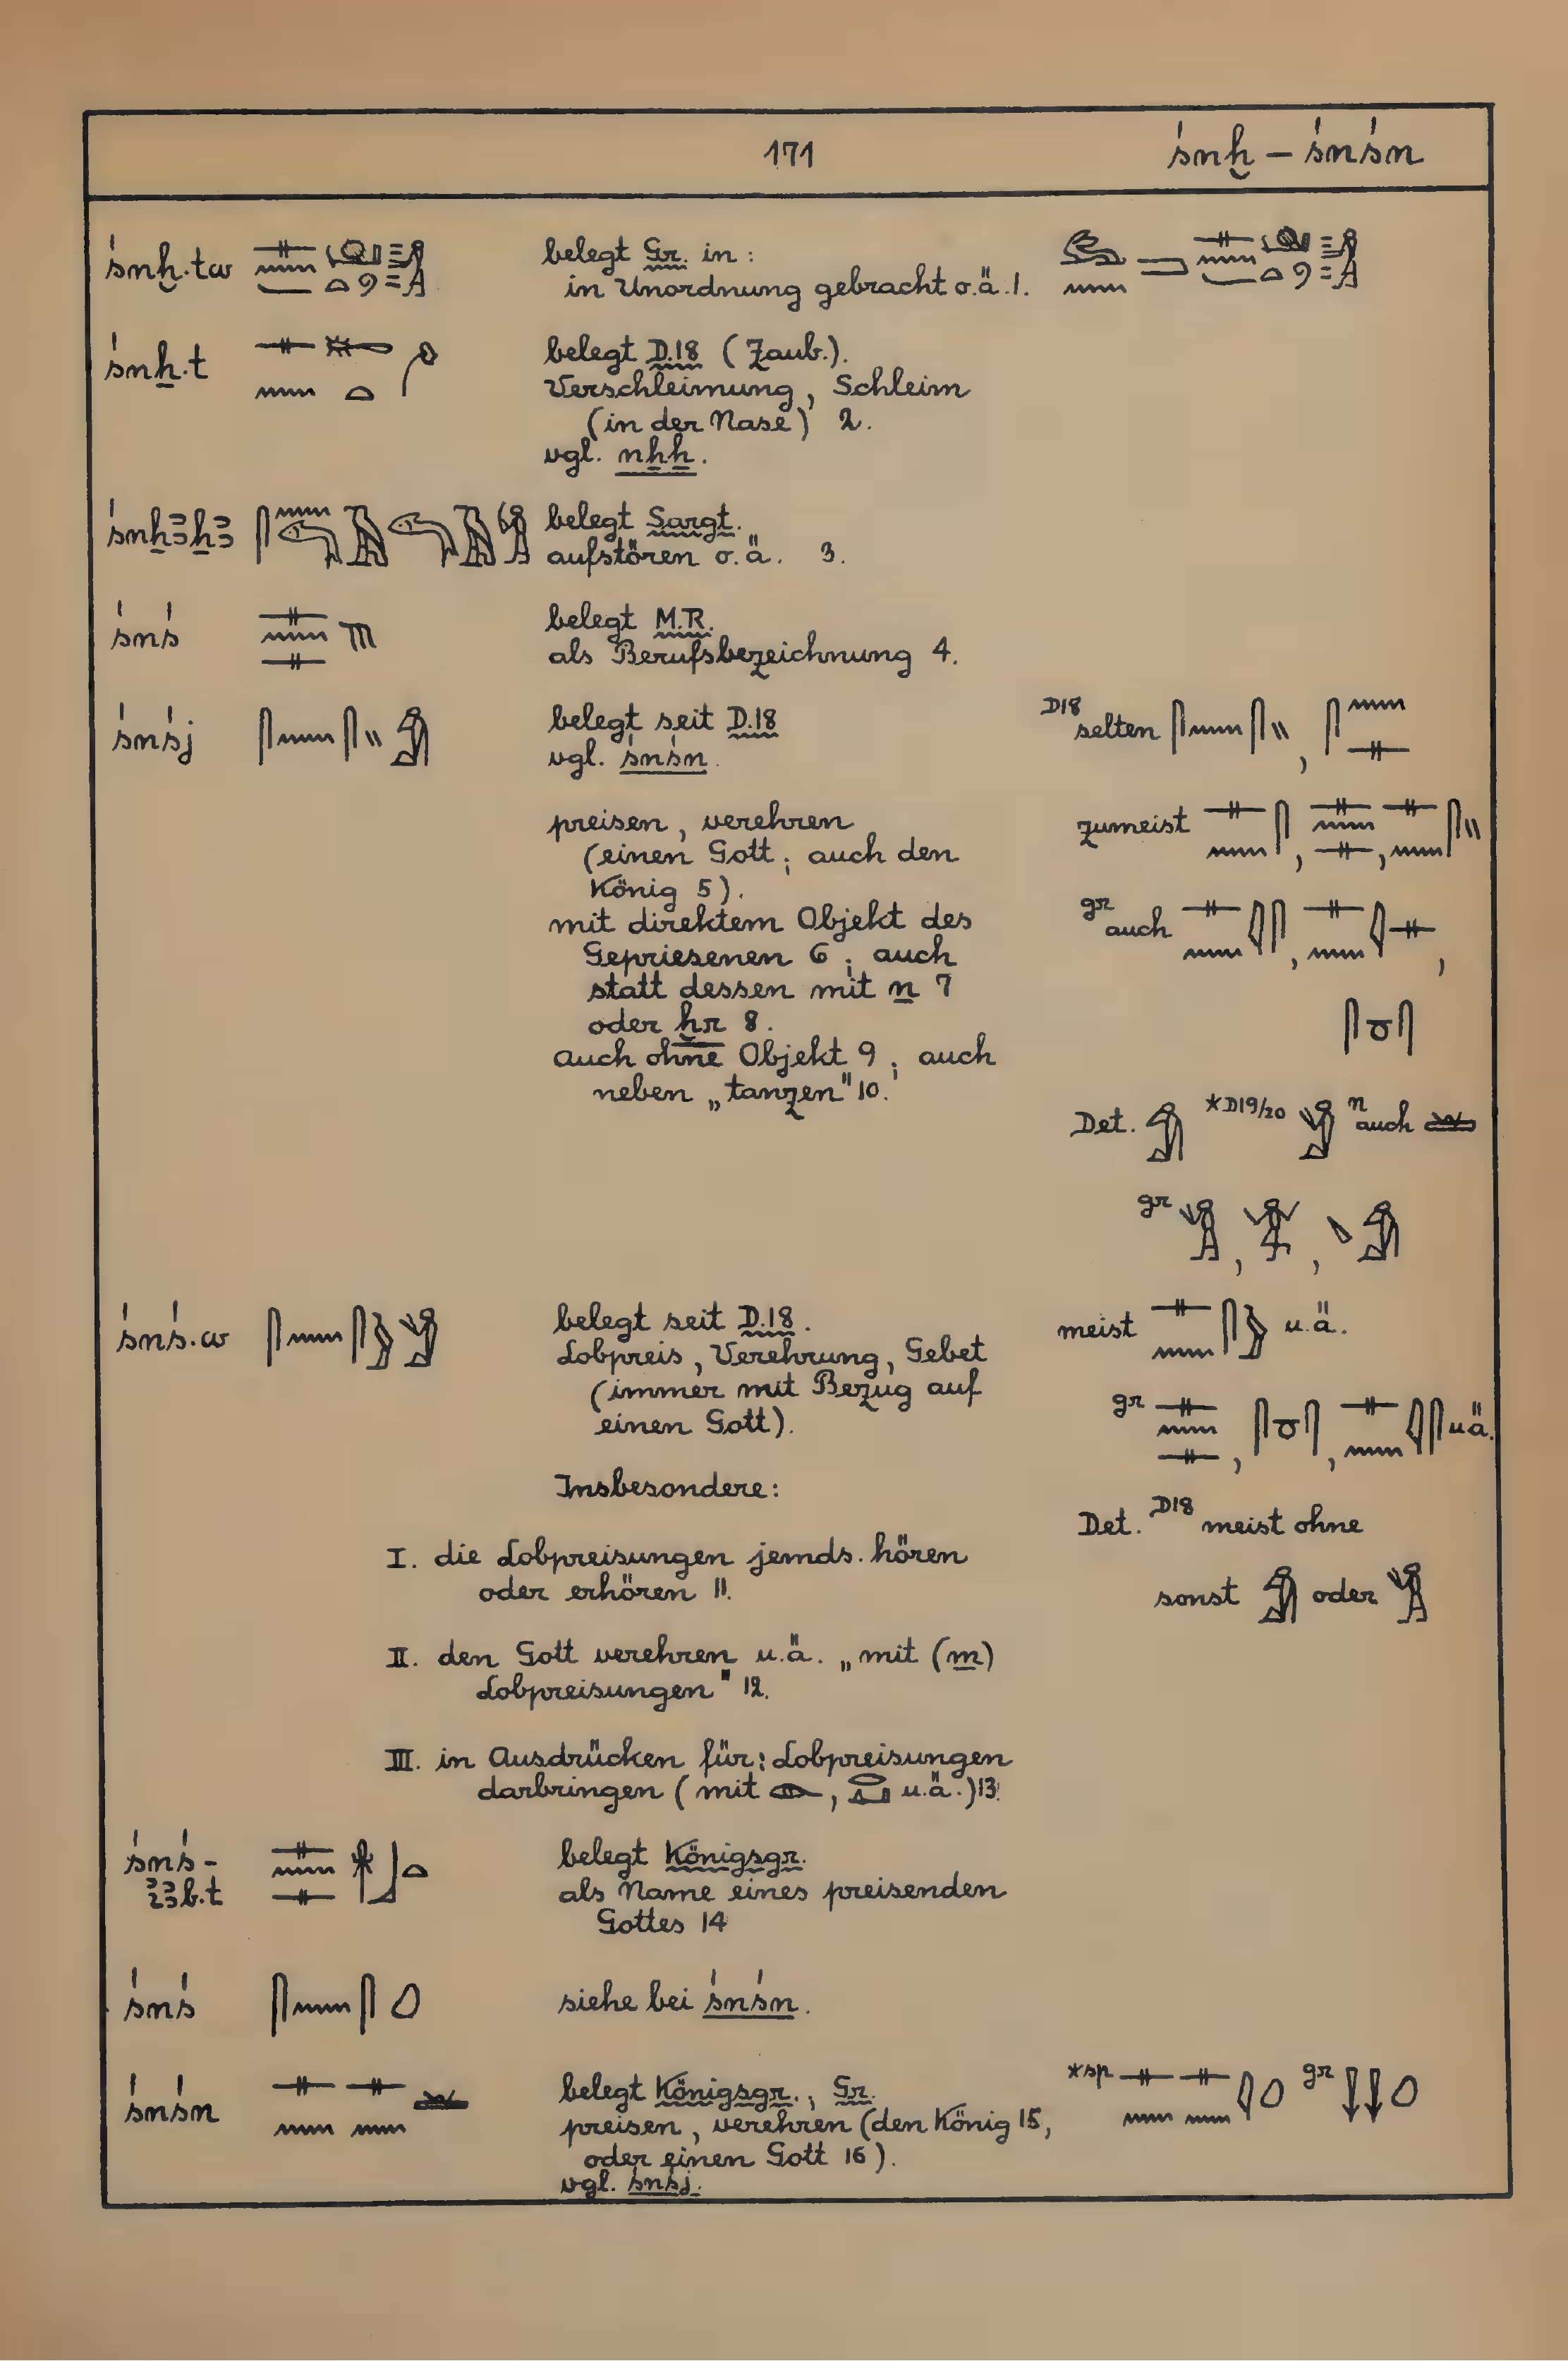 171
śnḫ – śnśn
śnḫ.tw
belegt Gr. in:
in Unordnung gebracht o.ä. 1.
śnẖ.t
belegt D.18 (Zaub.).
Verschleimung, Schleim
(in der Nase) 2.
vgl. nẖẖ.
śnẖꜣẖꜣ
belegt Sargt.
aufstören o.ä. 3.
śnś
belegt M.R.
als Berufsbezeichnung 4.
śnśj
belegt seit D.18
vgl. śnśn.
preisen, verehren
(einen Gott; auch den
König 5).
mit direktem Objekt des
Gepriesenen 6; auch
statt dessen mit n 7
oder ḫr 8.
auch ohne Objekt 9; auch
neben „tanzen" 10.
D18 selten
zumeist
gr auch
Det. *D19/20 n auch
gr
śnś.w
belegt seit D.18.
Lobpreis, Verehrung, Gebet
(immer mit Bezug auf
einen Gott).
Insbesondere:
I. die Lobpreisungen jemds. hören
oder erhören 11.
II. den Gott verehren u.ä. „mit (m)
Lobpreisungen" 12.
III. in Ausdrücken für: Lobpreisungen
darbringen (mit , u.ä.) 13.
meist u.ä.
gr u.ä.
Det. D18 meist ohne
sonst oder
śnś-
iꜣb.t
belegt Königsgr.
als Name eines preisenden
Gottes 14
śnś
siehe bei śnśn.
śnśn
belegt Königsgr., Gr.
preisen, verehren (den König 15,
oder einen Gott 16).
vgl. śnśj.
*sp gr